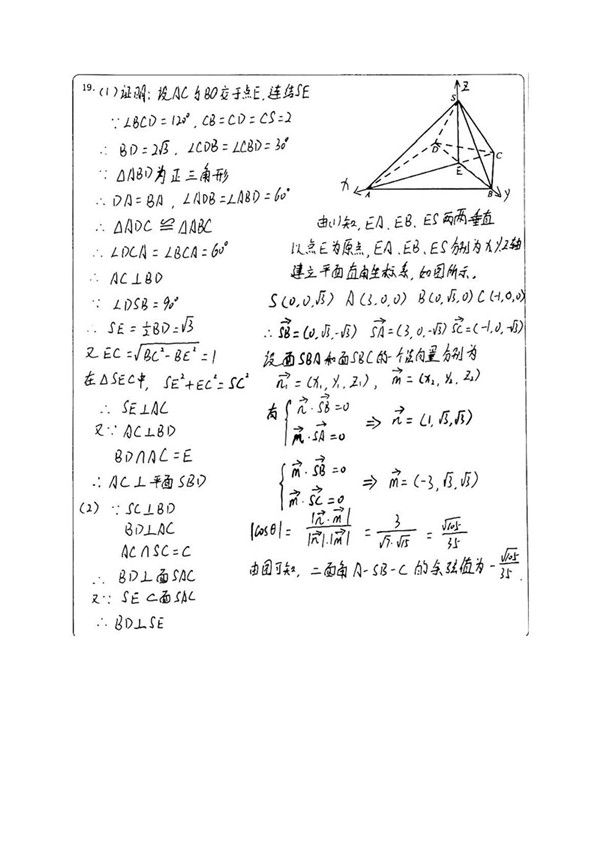 19. (1)证明：设AC与BD交于点E,连结SE
∵ ∠BCD=120°, CB=CD=CS=2
∴ BD=2√3, ∠CDB=∠CBD=30°
∵ △ABD为正三角形
∴ DA=BA, ∠ADB=∠ABD=60°
∴ △ADC≌△ABC
∴ ∠DCA=∠BCA=60°
∴ AC⊥BD
∵ ∠DSB=90°
∴ SE=½BD=√3
又EC=√(BC²-BE²)=1
在△SEC中, SE²+EC²=SC²
∴ SE⊥AC
又∵ AC⊥BD
BD∩AC=E
∴ AC⊥平面SBD
(2) ∵ SC⊥BD
BD⊥AC
AC∩SC=C
∴ BD⊥面SAC
又∵ SE⊂面SAC
∴ BD⊥SE
Z
S
D
C
E
X
A
B
Y
由(1)知, EA、EB、ES两两垂直
以点E为原点, EA、EB、ES分别为X、Y、Z轴
建立平面直角坐标系, 如图所示。
S(0,0,√3) A(3,0,0) B(0,√3,0) C(-1,0,0)
∴ SB→=(0,√3,-√3) SA→=(3,0,-√3) SC→=(-1,0,-√3)
设面SBA和面SBC的一个法向量分别为
n₁→=(x₁,y₁,z₁), m→=(x₂,y₂,z₂)
有 { n→·SB→=0
m→·SA→=0 ⇒ n→=(1,√3,√3)
{ m→·SB→=0
m→·SC→=0 ⇒ m→=(-3,√3,√3)
|cosθ|=|n→·m→|/|n→|·|m→|=3/√7·√15=√105/35
由图可知, 二面角A-SB-C的余弦值为-√105/35.